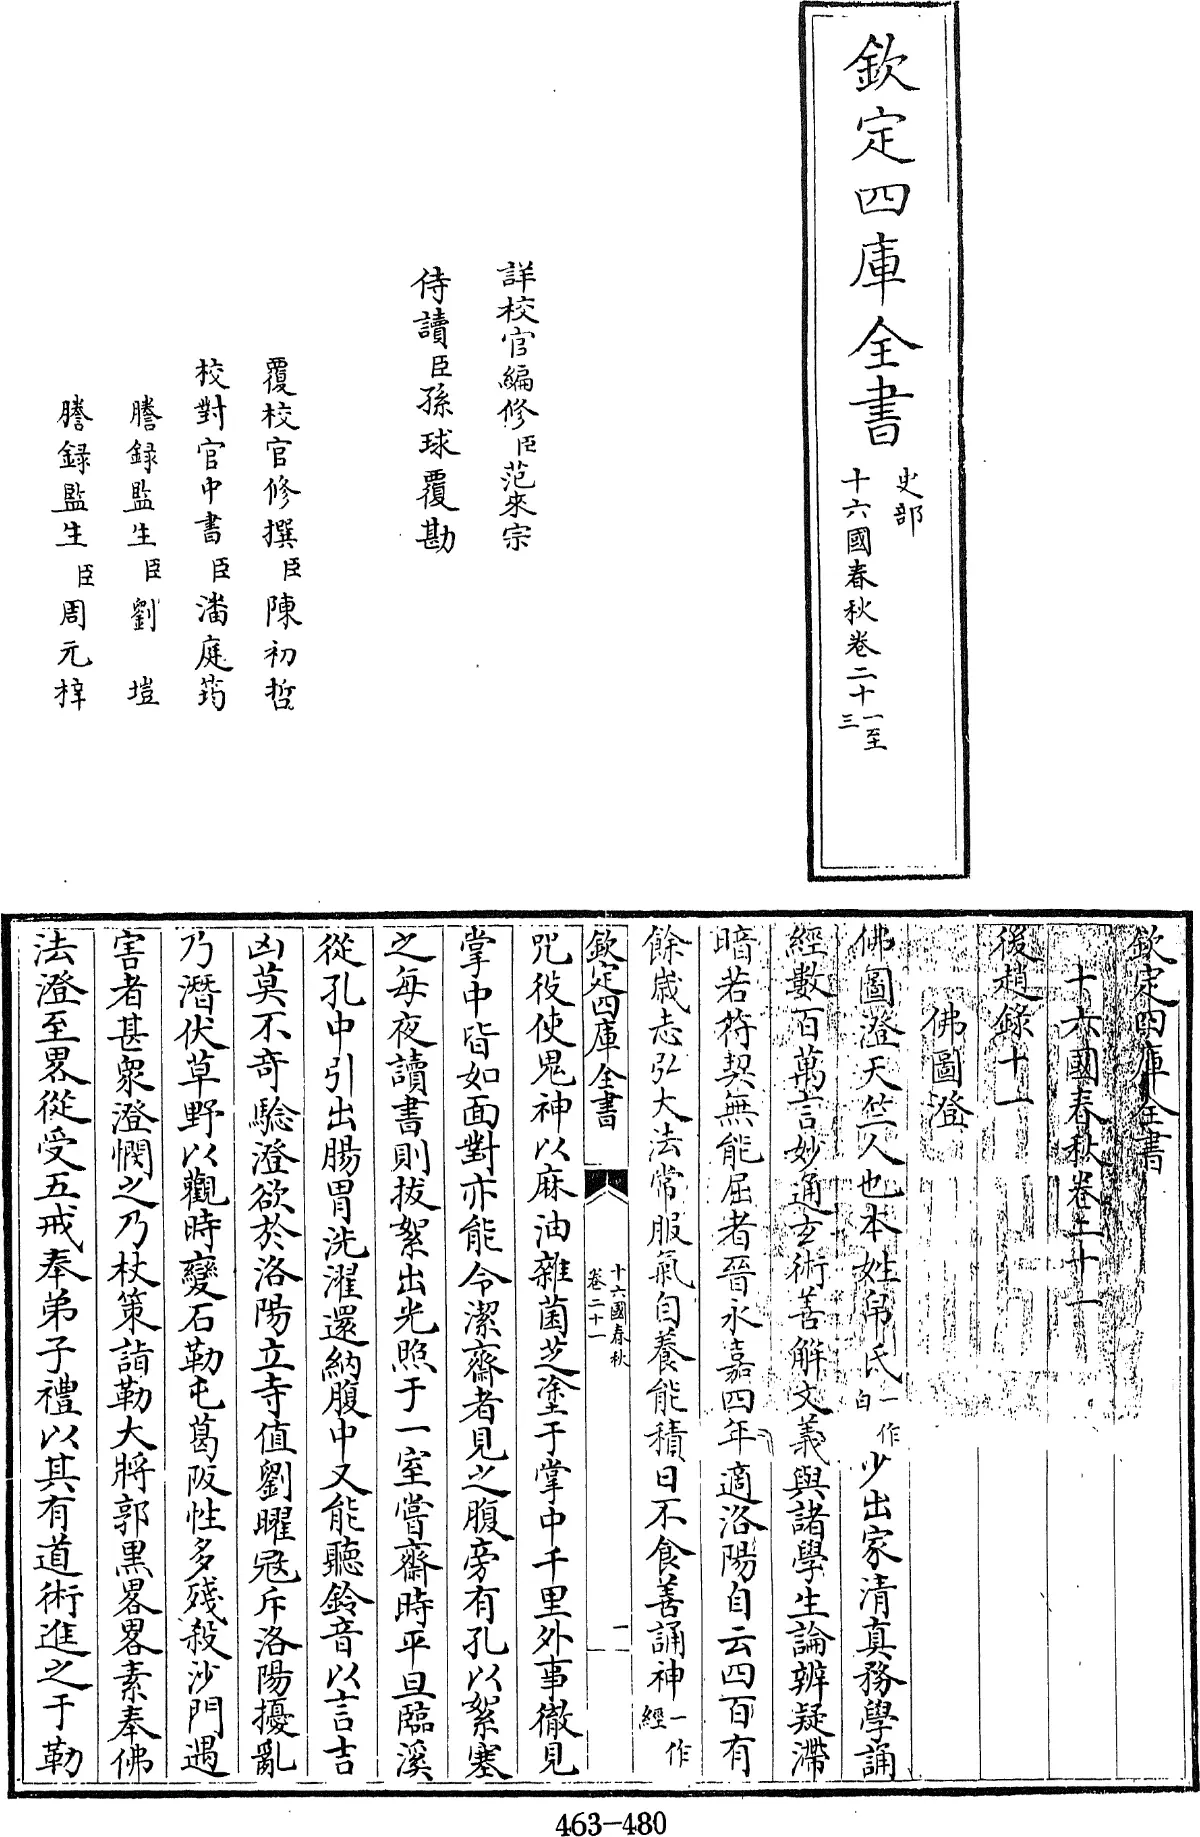 欽定四庫全書
史部
十六國春秋卷二十一至三
詳校官編修臣范來宗
侍讀臣孫球覆勘
覆校官修撰臣陳初哲
校對官中書臣潘庭筠
謄錄監生臣劉塏
謄錄監生臣周元梓
欽定四庫全書
十六國春秋卷二十一
後趙錄十一
佛圖澄
佛圖澄天竺人也本姓帛氏一作白少出家清真務學誦
經數百萬言妙通玄術善解文義與諸學生論辨疑滯
暗若符契無能屈者晉永嘉四年適洛陽自云四百有
餘歲志弘大法常服氣自養能積日不食善誦神一作經
欽定四庫全書
十六國春秋
卷二十一
一
咒役使鬼神以麻油雜菌芝塗于掌中千里外事徹見
掌中皆如面對亦能令潔齋者見之腹旁有孔以絮塞
之每夜讀書則拔絮出光照于一室嘗齋時平旦臨溪
從孔中引出腸胃洗濯還納腹中又能聽鈴音以言吉
凶莫不奇驗澄欲於洛陽立寺值劉曜寇斥洛陽擾亂
乃潛伏草野以觀時變石勒屯葛陂性多殘殺沙門遇
害者甚衆澄憫之乃杖策詣勒大將郭黑畧畧素奉佛
法澄至畧從受五戒奉弟子禮以其有道術進之于勒
463-480